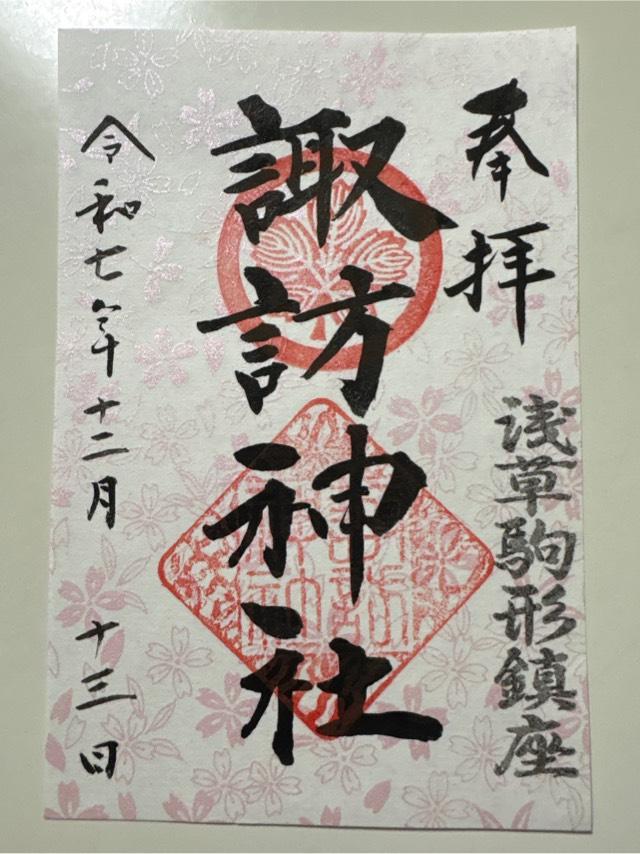 奉拝
浅草駒形鎮座
諏訪神社
令和七年十二月十三日